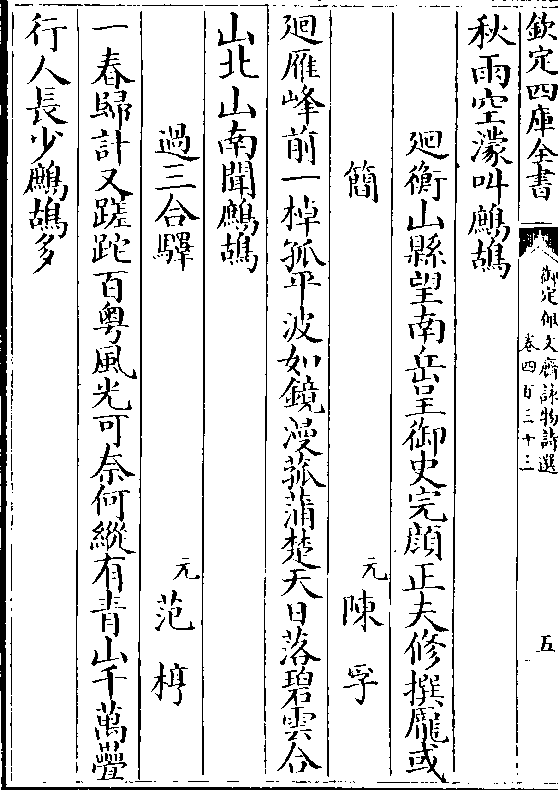 欽定四庫全書
御定佩文齋詠物詩選
卷四百三十三
五
秋雨空濛叫鷓鴣
廻衡山縣望南岳呈御史完顔正夫修撰龎或
簡
元陳孚
廻雁峰前一棹孤平波如鏡漫菰蒲楚天日落碧雲合
山北山南聞鷓鴣
過三合驛
元范梈
一春歸計又蹉跎百粤風光可奈何縱有青山千萬疊
行人長少鷓鴣多